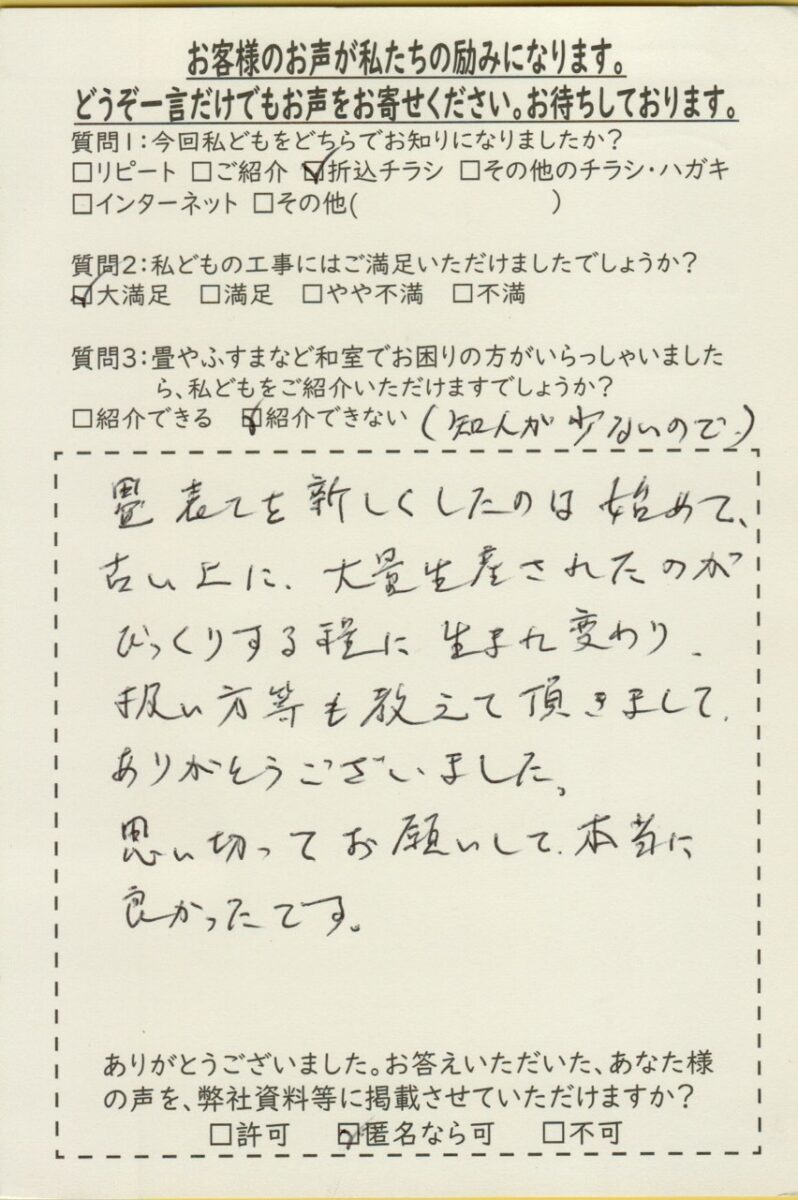 お客様のお声が私たちの励みになります。
どうぞ一言だけでもお声をお寄せください。お待ちしております。
質問1:今回私どもをどちらでお知りになりましたか?
□リピート □ご紹介 ☑折込チラシ □その他のチラシ・ハガキ
□インターネット □その他( )
質問2:私どもの工事にはご満足いただけましたでしょうか?
☑大満足 □満足 □やや不満 □不満
質問3:畳やふすまなど和室でお困りの方がいらっしゃいました
ら、私どもをご紹介いただけますでしょうか?
□紹介できる ☑紹介できない (知人が少ないので)
畳表てを新しくしたのは始めて、
古い上に、大量生産されたのが
びっくりする程に生まれ変わり、
扱い方等も教えて頂きまして、
ありがとうございました。
思い切ってお願いして、本当に
良かったです。
ありがとうございました。お答えいただいた、あなた様
の声を、弊社資料等に掲載させていただけますか?
□許可 ☑匿名なら可 □不可